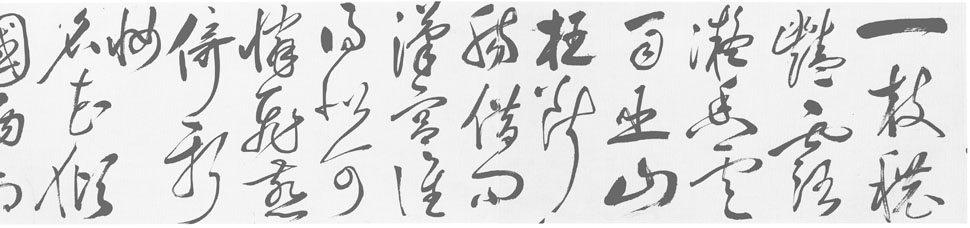 一枝穠
豔露
凝香雲
雨巫山
枉斷
腸借問
漢宮誰
得似可
憐飛燕
倚新
妝
名花傾
國兩